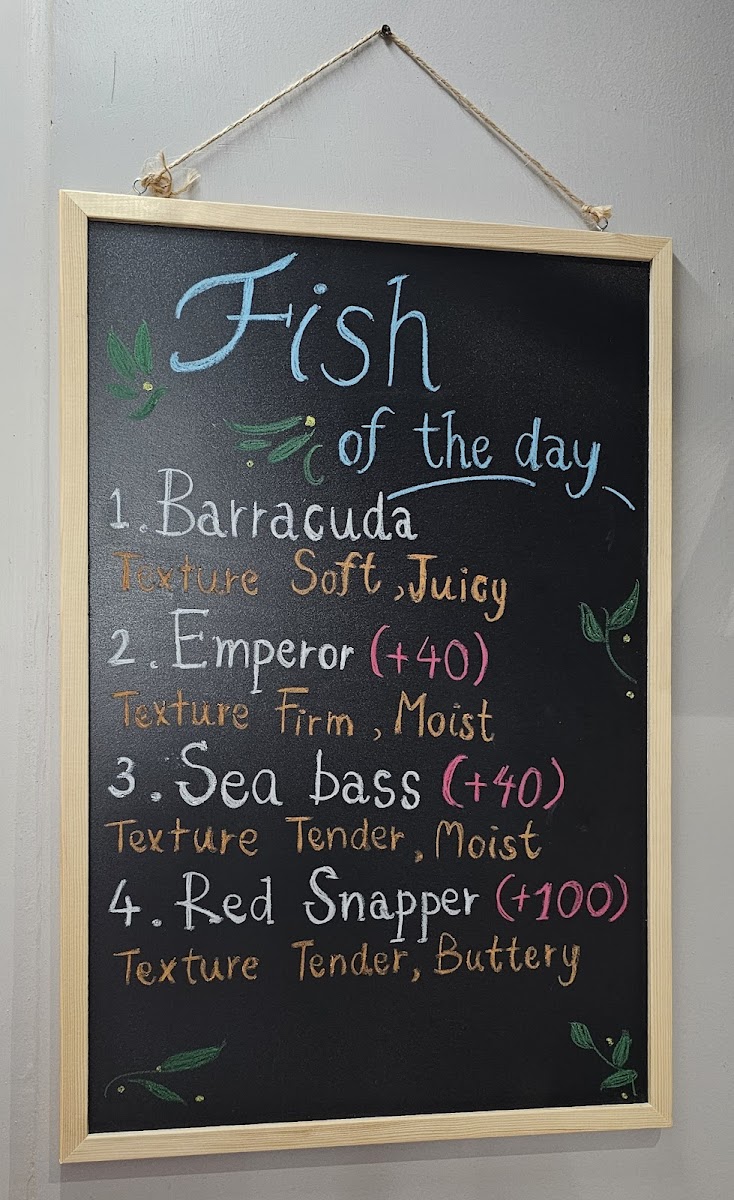 Fish
of the day
1. Barracuda
Texture Soft, Juicy
2. Emperor (+40)
Texture Firm, Moist
3. Sea bass (+40)
Texture Tender, Moist
4. Red Snapper (+100)
Texture Tender, Buttery